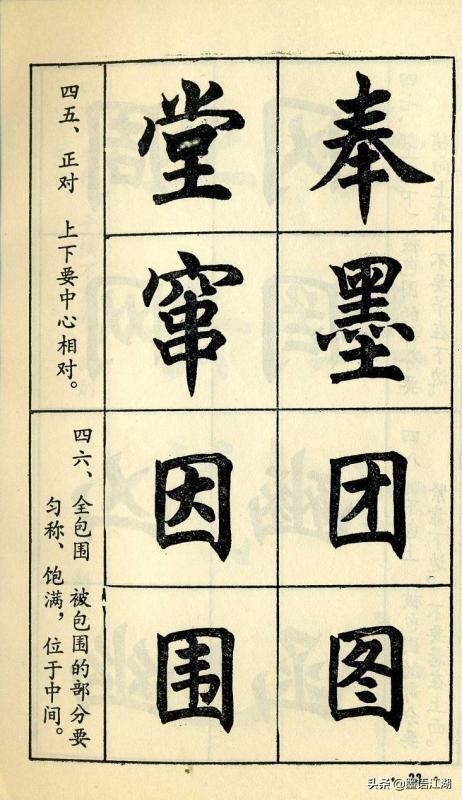 奉墨团图
堂窜因围
四五、正对 上下要中心相对。
四六、全包围 被包围的部分要
匀称、饱满，位于中间。
· 23 ·
头条 @墨语江湖